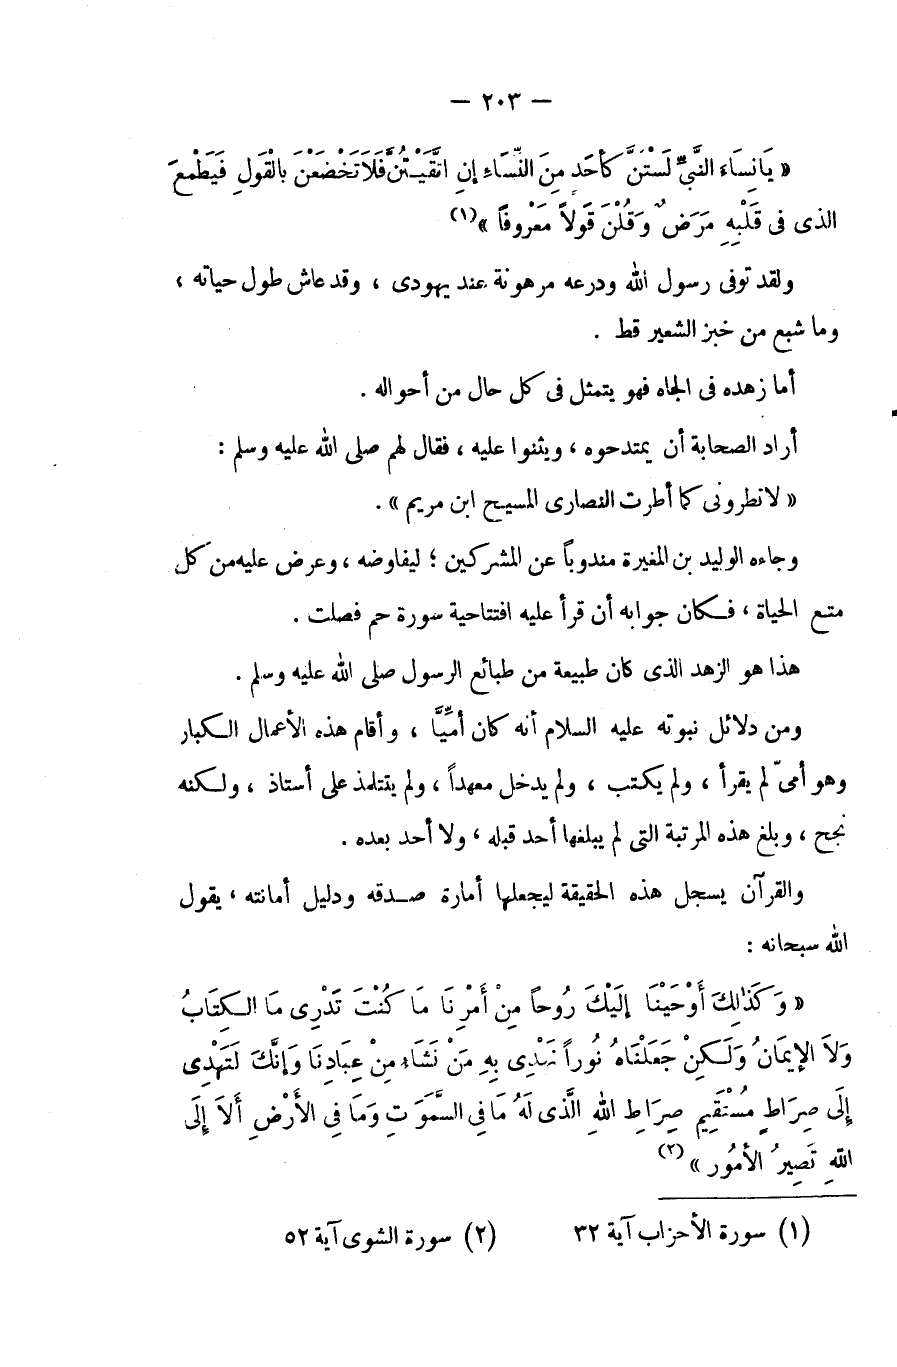 — ٢٠٣ —
« يَانِسَاءَ النَّبِىِّ لَسْتُنَّ كَأَحَدٍ مِنَ النِّسَاءِ إِنِ اتَّقَيْتُنَّ فَلاَ تَخْضَعْنَ بِالْقَولِ فَيَطْمَعَ
الذى فى قَلْبِهِ مَرَضٌ وَقُلْنَ قَولاً مَعْروفاً » (١)
ولقد توفى رسول الله ودرعه مرهونة عند يهودى ، وقد عاش طول حياته ،
وما شبع من خبز الشعير قط .
أما زهده فى الجاه فهو يتمثل فى كل حال من أحواله .
أراد الصحابة أن يمتدحوه ، ويثنوا عليه ، فقال لهم صلى الله عليه وسلم :
« لا تطرونى كما أطرت النصارى المسيح ابن مريم » .
وجاءه الوليد بن المغيرة مندوباً عن المشركين ؛ ليفاوضه ، وعرض عليه من كل
متع الحياة ، فكان جوابه أن قرأ عليه افتتاحية سورة حم فصلت .
هذا هو الزهد الذى كان طبيعة من طبائع الرسول صلى الله عليه وسلم .
ومن دلائل نبوته عليه السلام أنه كان أمِّيًّا ، وأقام هذه الأعمال الكبار
وهو أمىّ لم يقرأ ، ولم يكتب ، ولم يدخل معهداً ، ولم يتتلمذ على أستاذ ، ولكنه
نجح ، وبلغ هذه المرتبة التى لم يبلغها أحد قبله ، ولا أحد بعده .
والقرآن يسجل هذه الحقيقة ليجعلها أمارة صدقه ودليل أمانته ، يقول
الله سبحانه :
« وَكَذَٰلِكَ أَوْحَيْنَا إِلَيْكَ رُوحاً مِنْ أَمْرِنَا مَا كُنْتَ تَدْرِى مَا الكِتَابُ
وَلاَ الإِيمَانُ وَلَكِنْ جَعَلْنَاهُ نُوراً نَهْدِى بِهِ مَنْ نَشَاءُ مِنْ عِبَادِنَا وَإِنَّكَ لَتَهْدِى
إِلَى صِرَاطٍ مُسْتَقِيمٍ صِرَاطِ اللهِ الَّذى لَهُ مَا فِى السَّمٰوَتِ وَمَا فِى الأَرْضِ أَلاَ إِلَى
اللهِ تَصِيرُ الأمُور » (٢)
(١) سورة الأحزاب آية ٣٢ (٢) سورة الشوى آية ٥٢